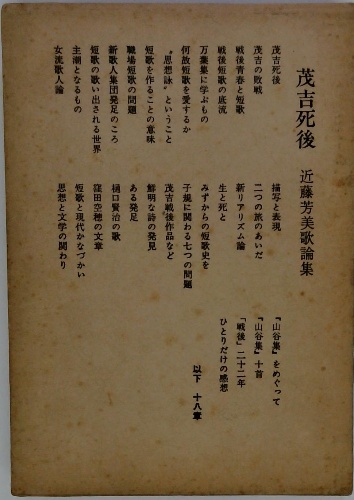 茂吉死後　近藤芳美歌論集
茂吉死後
茂吉の敗戦
戦後青春と短歌
戦後短歌の底流
万葉集に学ぶもの
何故短歌を愛するか
“思想詠”ということ
短歌を作ることの意味
職場短歌の問題
新歌人集団発足のころ
短歌の歌い出される世界
主潮となるもの
女流歌人論
描写と表現
二つの旅のあいだ
新リアリズム論
生と死と
みずからの短歌史を
子規に関わる七つの問題
茂吉戦後作品など
鮮明な詩の発見
ある発足
樋口賢治の歌
窪田空穂の文章
短歌と現代かなづかい
思想と文学の関わり
『山谷集』をめぐって
『山谷集』十首
「戦後」二十二年
ひとりだけの感想
以下　十八章